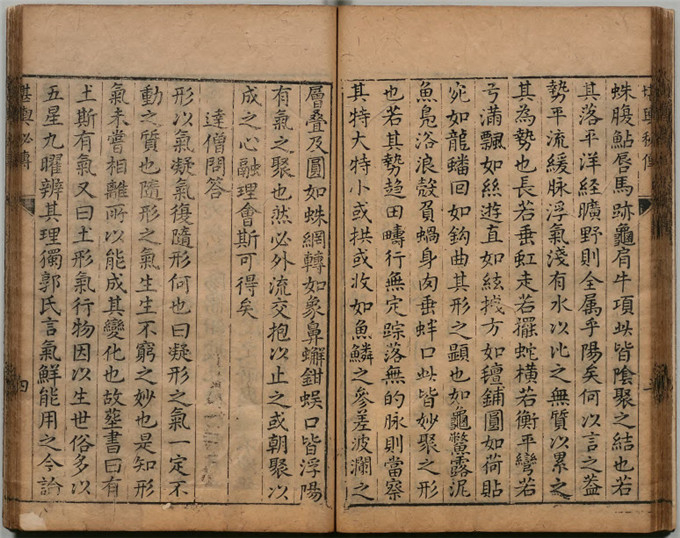 蛛腹鮎唇馬跡龜肩牛項此皆陰聚之結也若
其落平洋經曠野則全属乎陽矣何以言之葢
勢平流緩脉浮氣淺有水以比之無質以累之
其為勢也長若垂虹走若擺蛇橫若衡平彎若
弓滿飄如絲遊直如絃機方如氊鋪圓如荷貼
宛如龍蟠回如鈎曲其形之顯也如龜鱉露泥
魚鳧浴浪殼負蝸身肉垂蚌口此皆妙聚之形
也若其勢趋田疇行無定踪落無的脉則當察
其特大特小或拱或收如魚鱗之參差波瀾之
層叠及圓如蛛網轉如象鼻蠏鉗蜈口皆浮陽
有氣之聚也然必外流交抱以止之或朝聚以
成之心融理會斯可得矣
逹僧問答
形以氣凝氣復隨形何也曰凝形之氣一定不
動之質也隨形之氣生生不窮之妙也是知形
氣未嘗相離所以能成其變化也故塟書曰有
土斯有氣又曰土形氣行物因以生世俗多以
五星九曜辨其理獨郭氏言氣鮮能用之今論
堪輿必傳
四